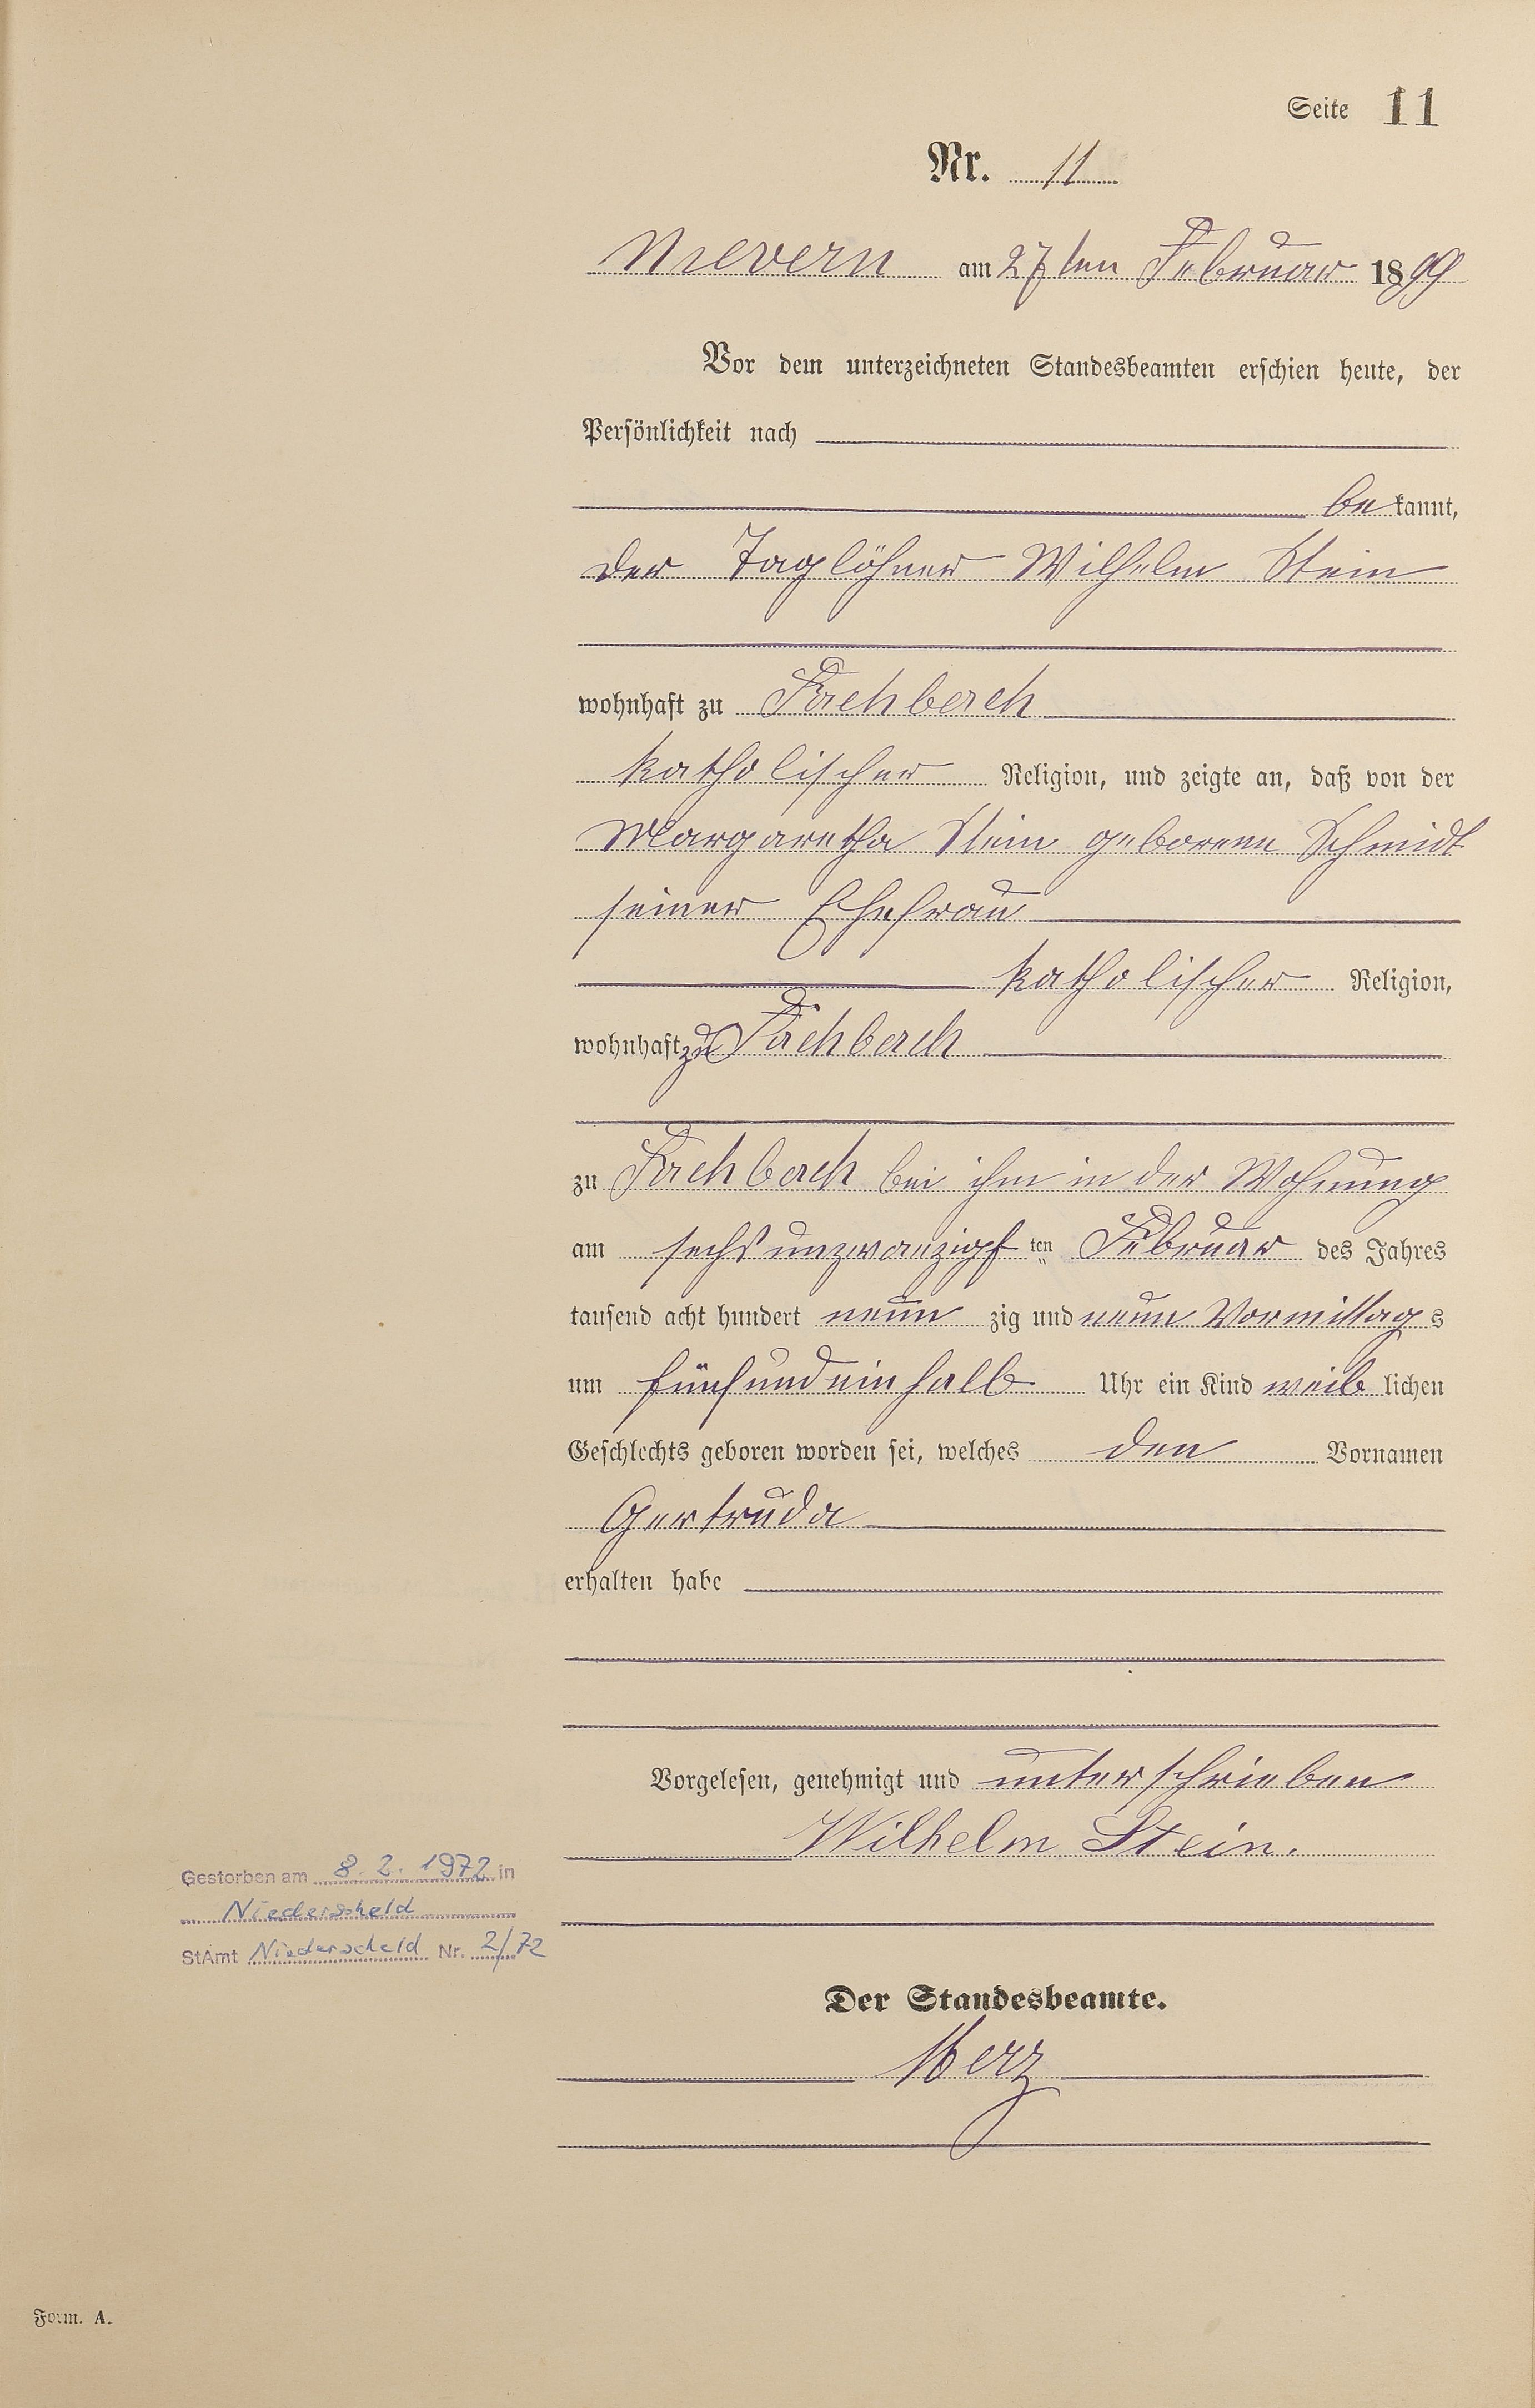 Seite 11
Nr. 11
Nievern am 27ten Februar 1899
Vor dem unterzeichneten Standesbeamten erschien heute, der
Persönlichkeit nach
be kannt,
der Taglöhner Wilhelm Stein
wohnhaft zu Fachbach
katholischer Religion, und zeigte an, daß von der
Margaretha Stein geborene Schmidt
seiner Ehefrau
katholischer Religion,
wohnhaft zu Fachbach
zu Fachbach bei ihm in der Wohnung
am sechsunzwanzigsten Februar des Jahres
tausend acht hundert neun zig und neun Vormittag s
um fünfundeinhalb Uhr ein Kind weib lichen
Geschlechts geboren worden sei, welches den Vornamen
Gertruda
erhalten habe
Vorgelesen, genehmigt und unterschrieben
Wilhelm Stein.
Gestorben am 8.2.1972 in
Niederscheld
StAmt Niederscheld Nr. 2/72
Der Standesbeamte.
Merz
Form. A.